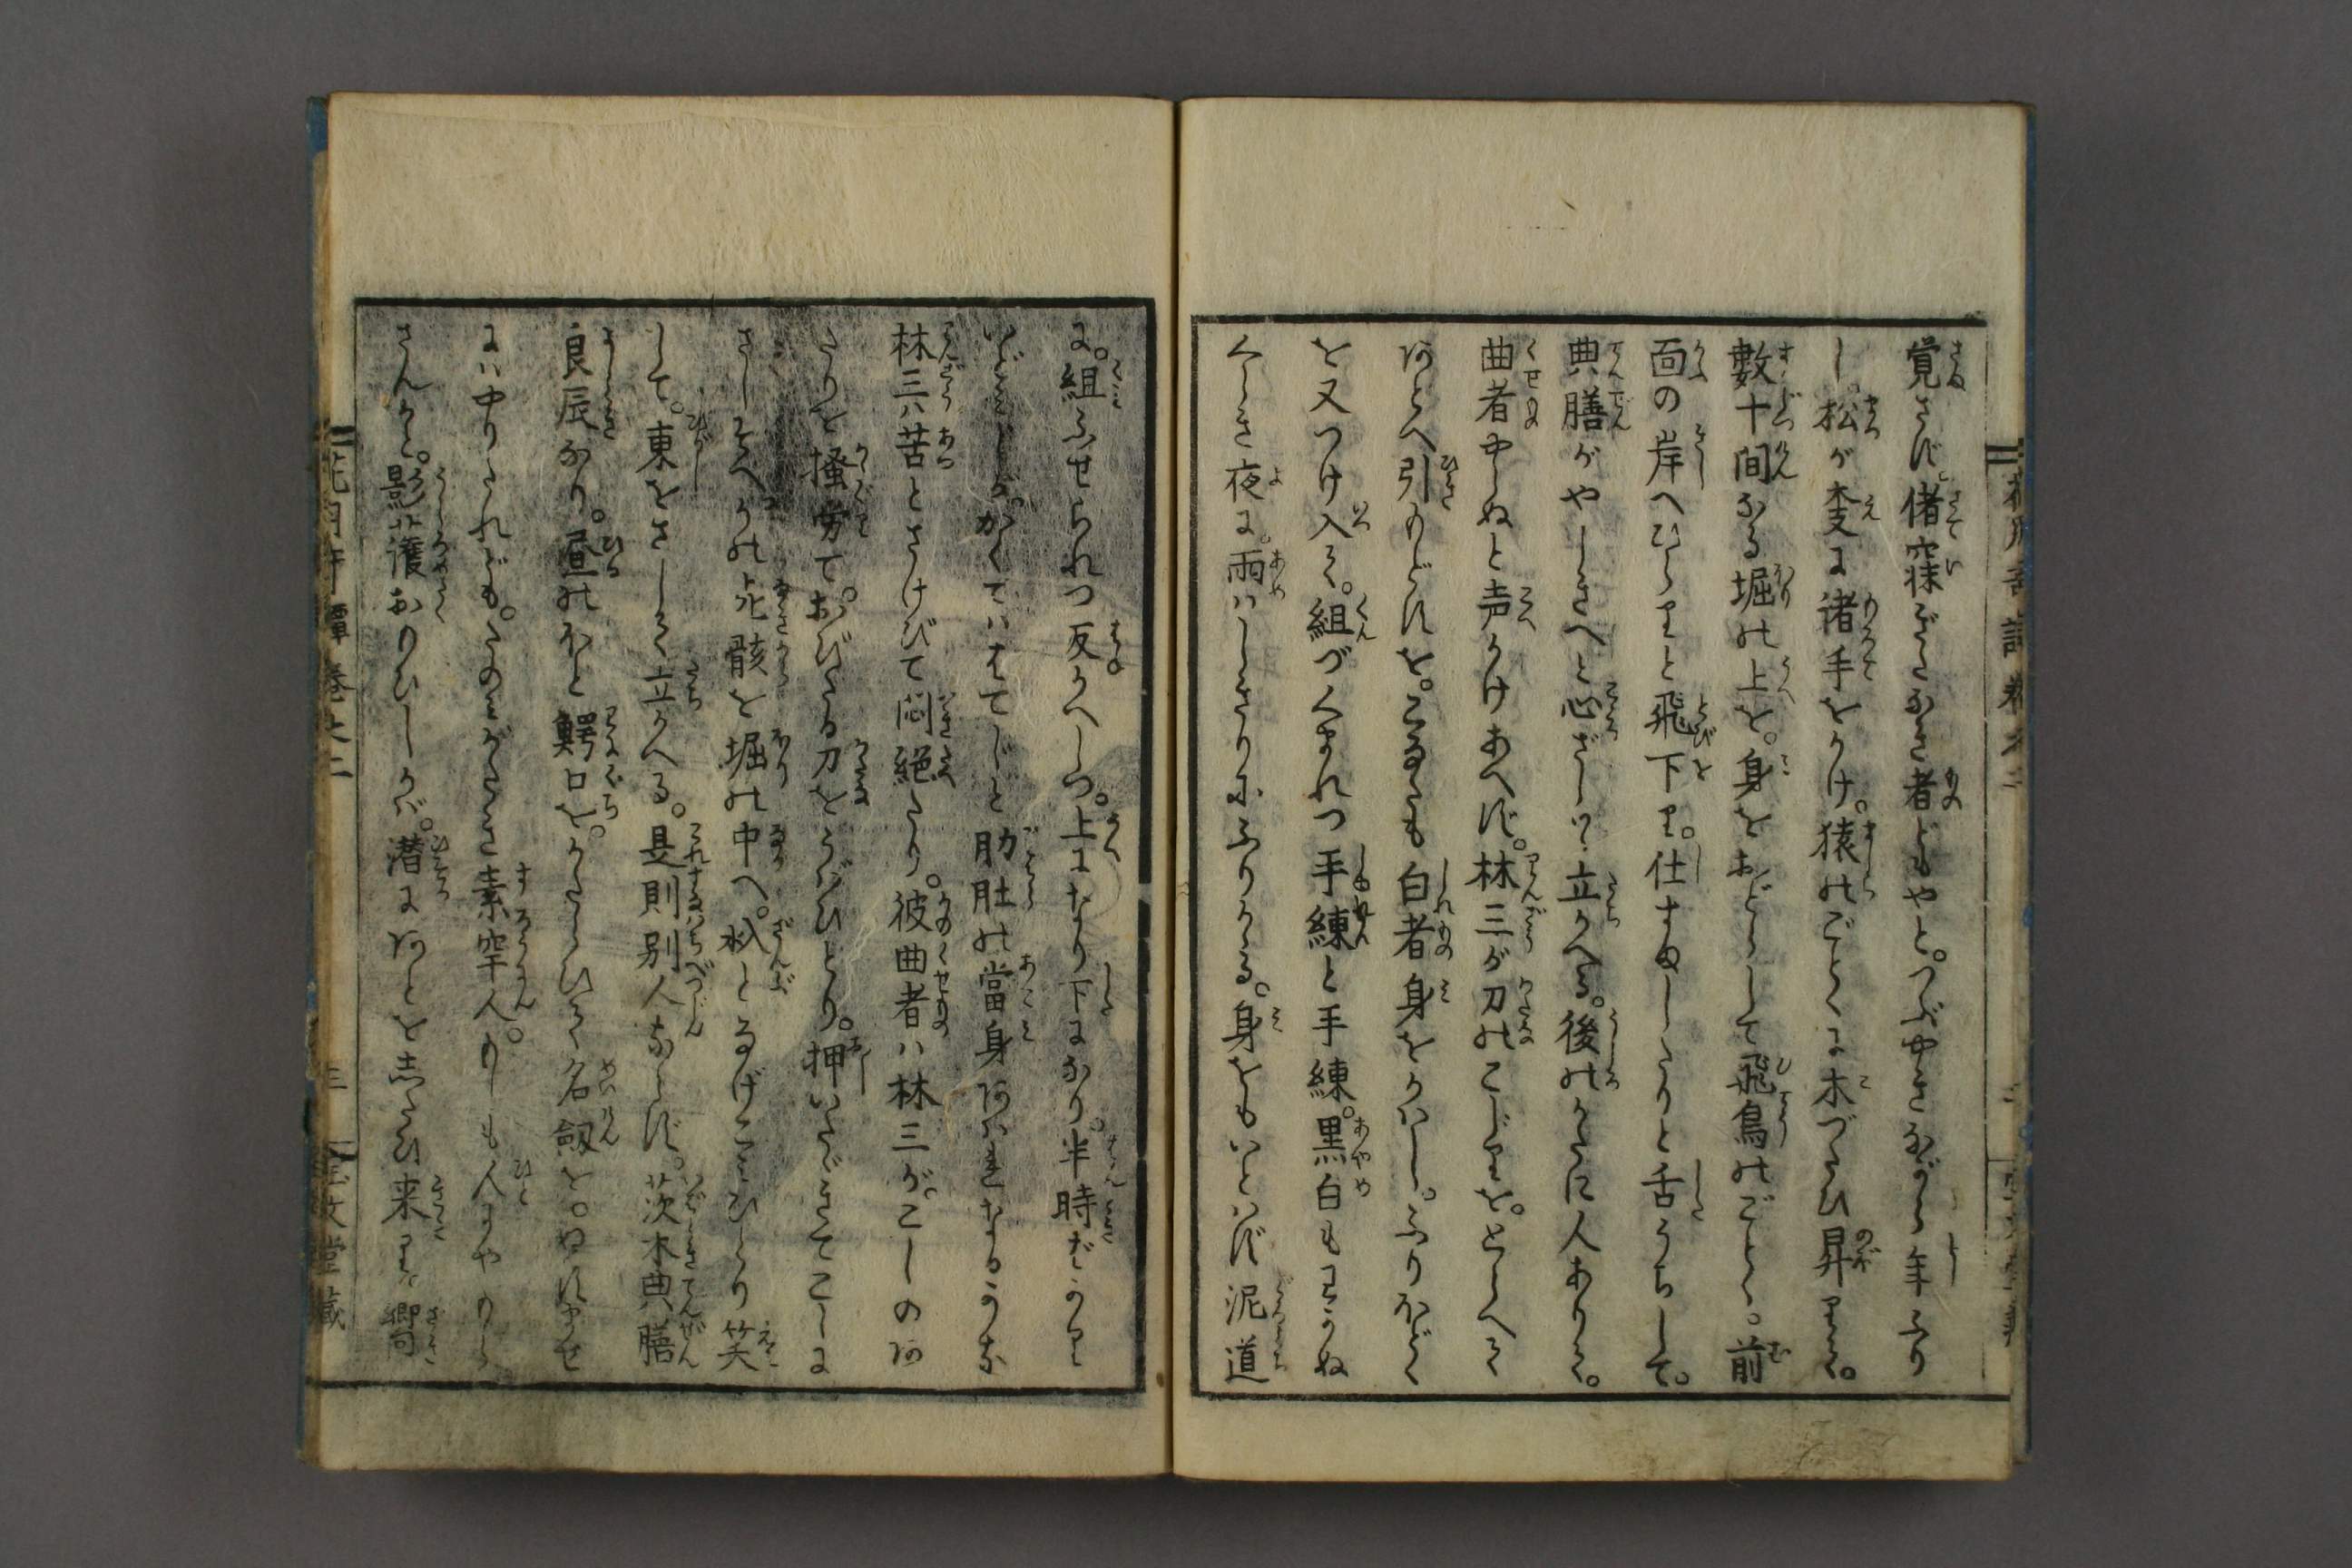 覚さず。偖寐ぎたなき者どもやと。つぶやきながら年ふり
し。松が杢に諸手をかけ。猿のごとくに木づたひ昇りて。
數十間なる堀の上を。身をおどらして飛鳥のごとく。前
面の岸へひらりと飛下り。仕すましたりと舌うちして。
典膳がやしきへと心ざしつゝ立かへる。後のかたに人ありて。
曲者やらぬと声かけあへず。林三が刀のこじりを。とらへて
あとへ引もどすを。こなたも白者身をかはし。ふりほどく
を又つけ入て。組づくまれつ手練と手練。黒白もわかぬ
くらき夜に。雨はしきりにふりかゝる。身をもいとはず泥道
に。組ふせられつ反かへしつ。上になり下になり。半時ばかり
いどみしが。かくてははてじと肋肚の當身あはれなるかな
林三は苦とさけびて悶絶たり。彼曲者は林三が。こしのあ
たりを掻労て。おびたる刀をうばひとり。押いたゞきてこしに
さしそへかの死骸を堀の中へ。汃となげこみひとり笑
して。東をさして立かへる。是則別人ならず。茨木典膳
良辰なり。昼のほど鰐口を。かたらひて名剱を。ぬすませ
には中りたれども。たのみがたき素窂人。もしも人にやもら
さんかと。影護おもひしかば。潜にあとをしたひ来り。嚮
花月奇譚巻之二